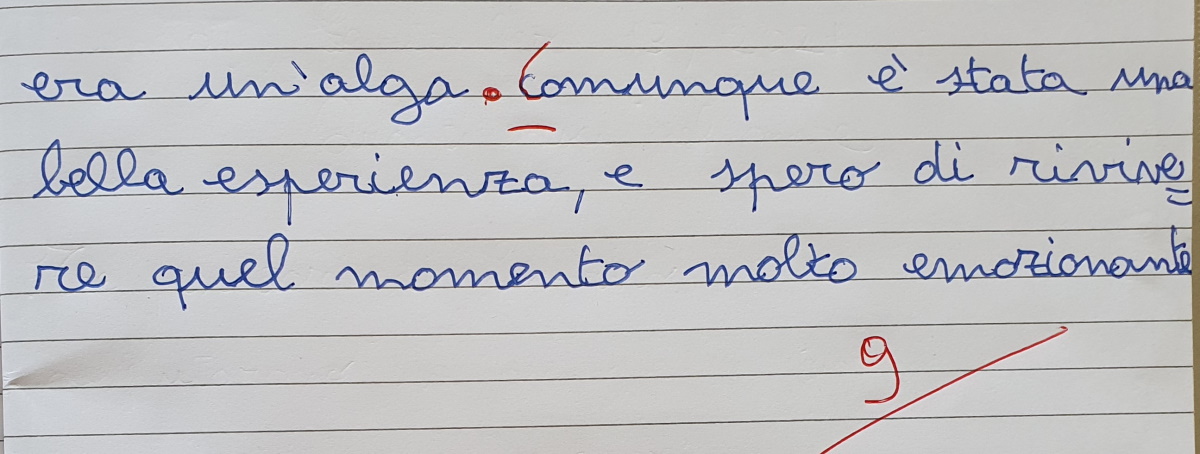 era un'alga. Comunque è stata una
bella esperienza, e spero di rivive=
re quel momento molto emozionante
9